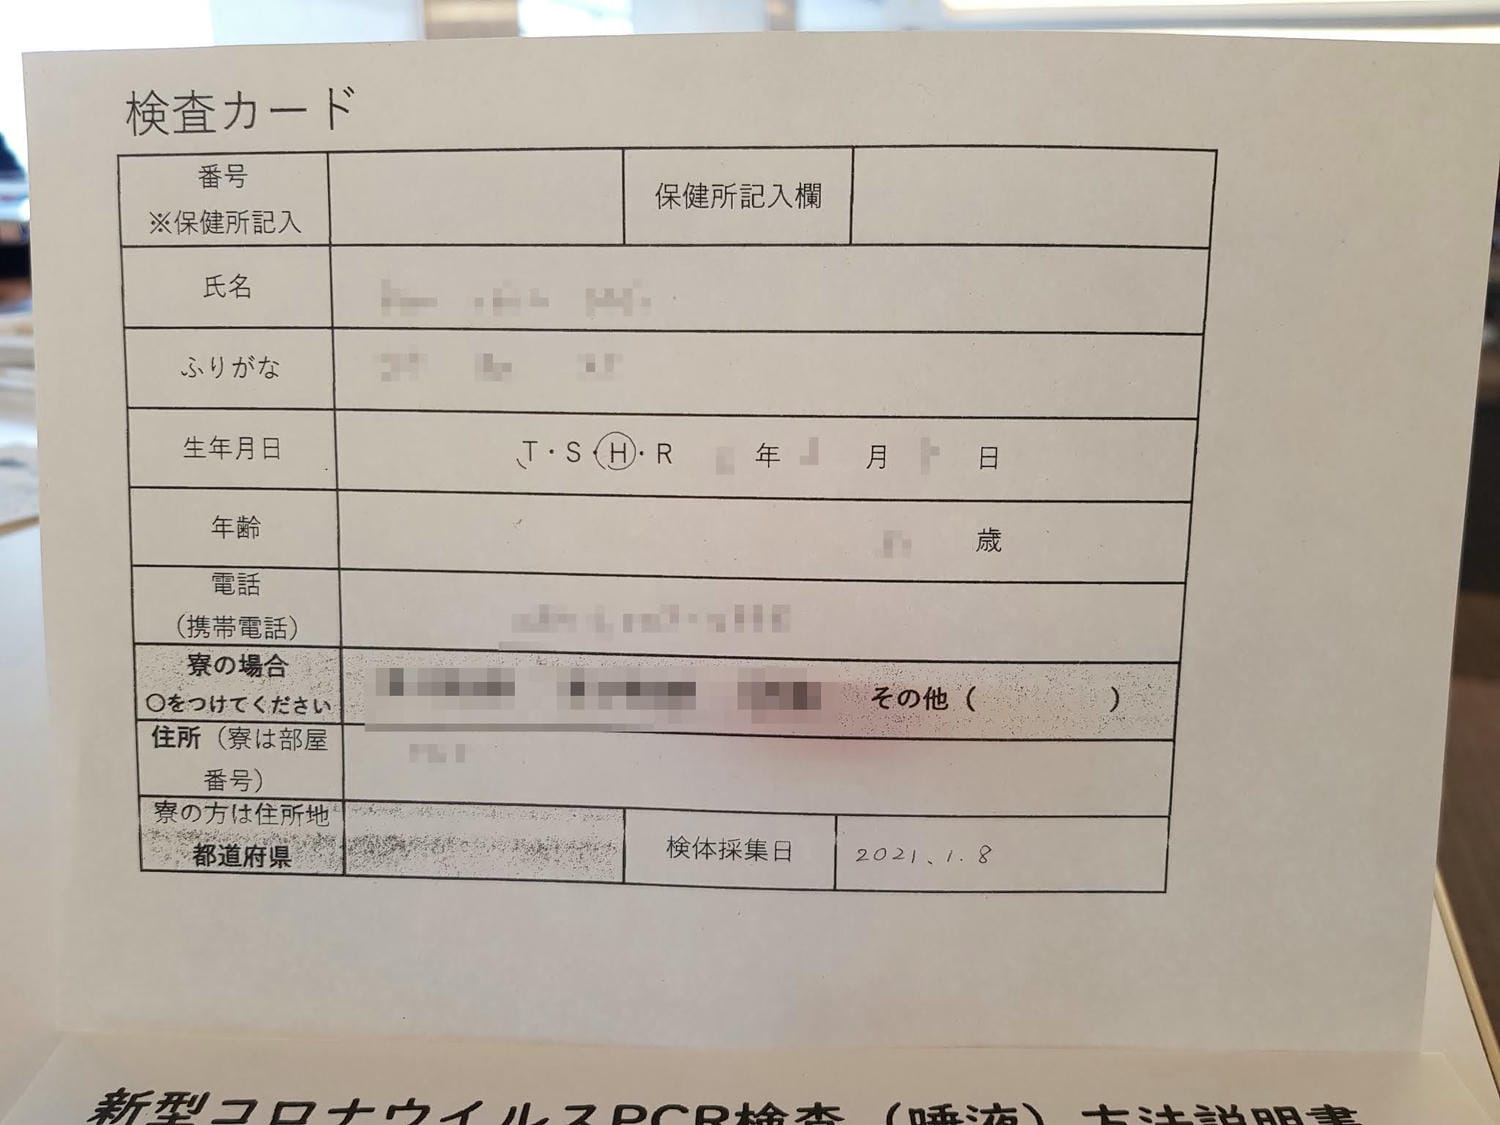 検査カード
番号
※保健所記入
保健所記入欄
氏名
ふりがな
生年月日
T・S・H・R 年 月 日
年齢
歳
電話
（携帯電話）
寮の場合
〇をつけてください
その他（ ）
住所（寮は部屋
番号）
寮の方は住所地
都道府県
検体採集日
2021、1.8
新型コロナウイルスPCR検査（唾液）方法説明書